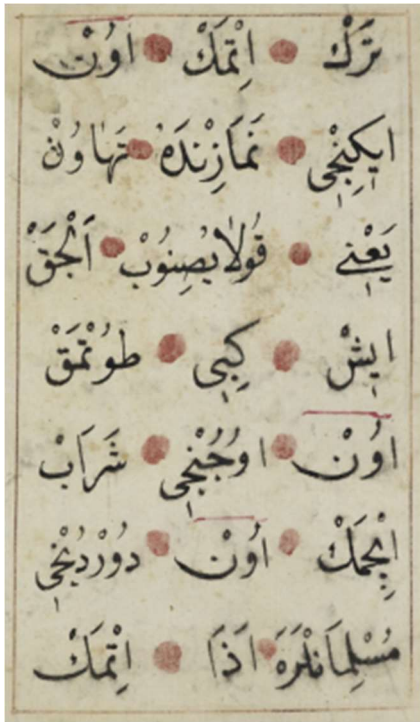 تَرْكْ اِتْمَكْ اوُنْ
ايكِنْجِى نَمَازِنْدَهْ تَهَاوُنْ
يَعْنِي قُولَايْصِنُوبْ اَلْجَقْ
ايشْ كِبِى طوُتْمَقْ
اوُنْ اوُجُنْجِى شَرَابْ
اِيچْمَكْ اوُنْ دوُرْدُنْجِى
مُسْلِمَانْلَرَهْ اَذَا اِتْمَكْ